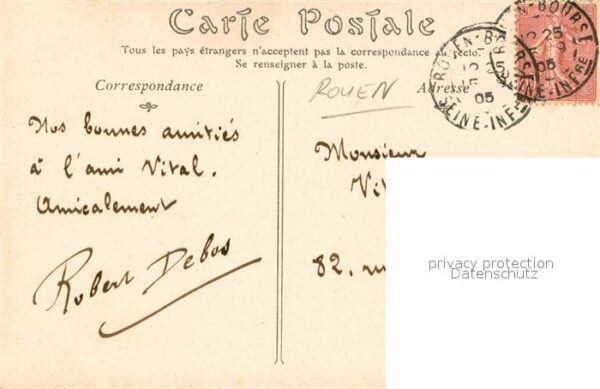 Carte Postale
Tous les pays étrangers n'acceptent pas la correspondance au recto.
Se renseigner à la poste.
Correspondance
Adresse
ROUEN
Nos bonnes amitiés
à l'ami Vital.
Amicalement
Robert Debos
Monsieur
Vit
82. ru
privacy protection
Datenschutz
ROUEN-BOURSE
05
SEINE-INFRE
N-BOURSE
25
9
05
SEINE-INFRE